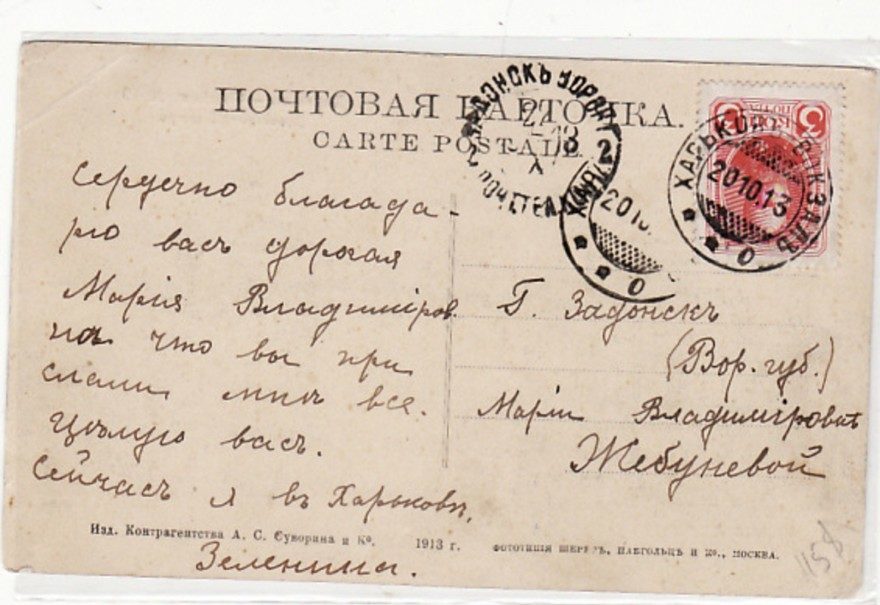 ПОЧТОВАЯ КАРТОЧКА.
CARTE POSTALE.
ЗАДОНСКЪ ВОРОН
ХАРЬКОВЪ ВОКЗАЛЪ
20 10.13
Сердечно благада-
рю васъ дорогая
Марія Владиміров.
на что вы при
слали мнѣ все.
Цѣлую васъ.
Сейчасъ я въ Харьковѣ.
Зеленина.
Г. Задонскъ
(Вор. губ.)
Маріи Владиміровнѣ
Жебуневой
Изд. Контрагентства А. С. Суворина и Ко. 1913 г.
ФОТОТИПІЯ ШЕРЕРЪ, НАБГОЛЬЦЪ И Ко., МОСКВА.
158